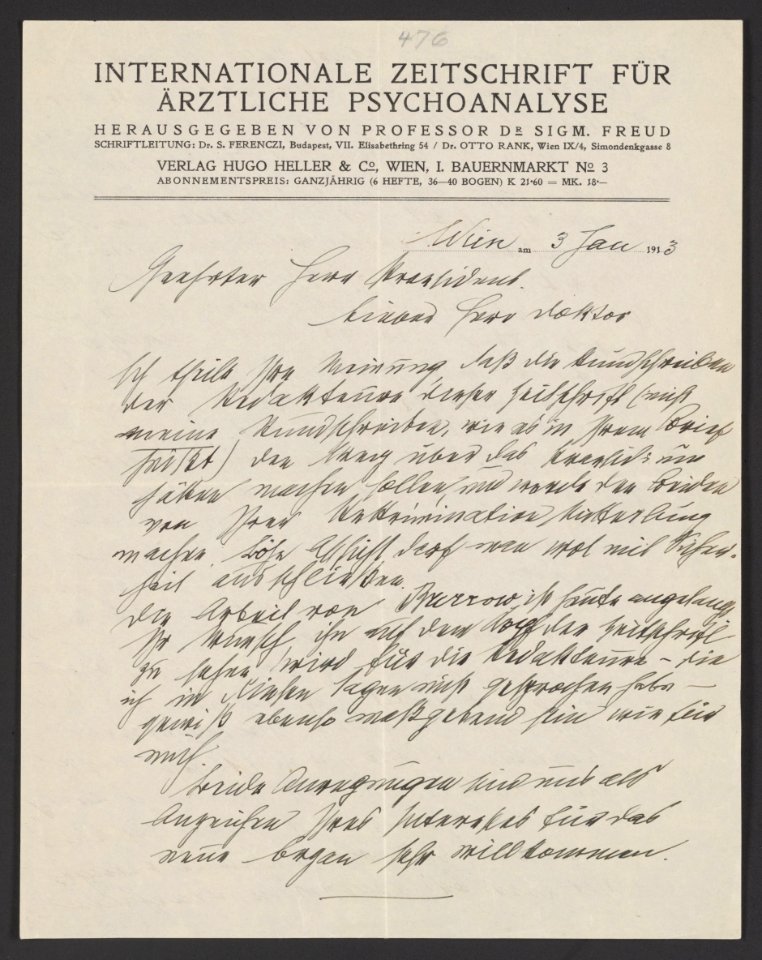 476
INTERNATIONALE ZEITSCHRIFT FÜR
ÄRZTLICHE PSYCHOANALYSE
HERAUSGEGEBEN VON PROFESSOR DR SIGM. FREUD
SCHRIFTLEITUNG: Dr. S. FERENCZI, Budapest, VII. Elisabethring 54 / Dr. OTTO RANK, Wien IX/4, Simondenkgasse 8
VERLAG HUGO HELLER & Co, WIEN, I. BAUERNMARKT No 3
ABONNEMENTSPREIS: GANZJÄHRIG (6 HEFTE, 36—40 BOGEN) K 21·60 = MK. 18·—
Wien am 3 Jan 1913
Geehrter Herr Praesident
Lieber Herr Doktor
Ich theile Ihre Meinung daß die Rundschreiben
der Redakteure dieser Zeitschrift (nicht
meine Rundschreiben, wie es in Ihrem Brief
heißt) den Weg über das Praesidium
hätten machen sollen und werde den Beiden
von Ihrer Rekrimination Mitteilung
machen. Böse Absicht darf man wol mit Sicher-
heit ausschließen.
Die Arbeit von Burrow ist heute angelangt
Ihr Wunsch ihn auf dem Kopf der Zeitschrift
zu sehen wird für die Redakteure – die
ich in diesen Tagen nicht gesprochen habe –
gewiß ebenso maßgebend sein wie für
mich.
Beide Anregungen sind uns als
Anzeichen Ihres Interesses für das
neue Organ sehr willkommen.